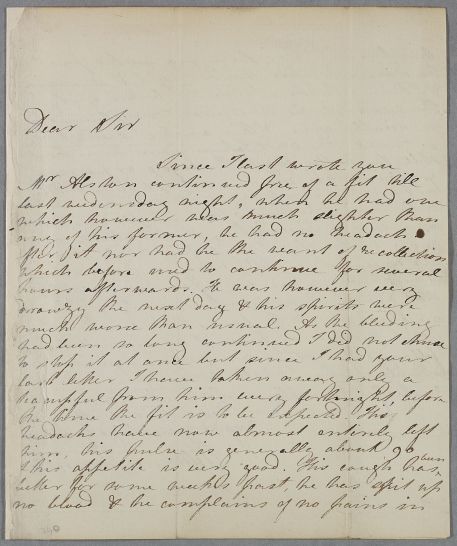 Dear Sir
Since I last wrote you
Mr Alston continued free of a fit till
last wednesday night, when he had one
which however was much slighter than
any of his former, he had no headach
after it nor had he the want of recollection
which before used to continue for several
hours afterwards. He was however very
drowzy the next day & his spirits were
much worse than usual. As the bleeding
had been so long continued I did not chuse
to stop it at once but since I had your
last letter I have taken away only a
teacupful from him every fortnight, before
the time the fit is to be expected. His
headachs have now almost entirely left
him, his pulse is generally about 90
& his appetite is very good. His cough has
better for some weeks past, he has spit up
no blood & he complains of no pains in